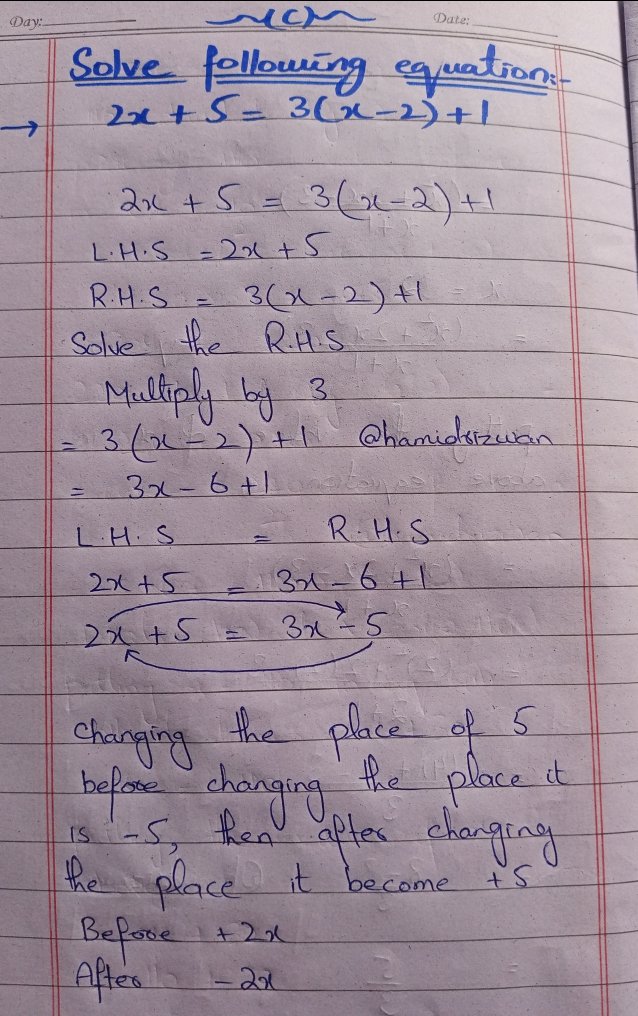 Day:
~(C)~
Date:
Solve following equation:-
→ 2x + 5 = 3(x-2)+1
2x + 5 = 3(x-2)+1
L.H.S = 2x + 5
R.H.S = 3(x-2)+1
Solve the R.H.S
Multiply by 3
= 3(x-2)+1 @hamidrizwan
= 3x-6+1
L.H.S = R.H.S
2x+5 = 3x-6+1
2x+5 = 3x-5
Changing the place of 5
before changing the place it
is -5, then after changing
the place it become +5
Before +2x
After -2x